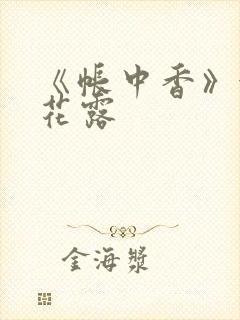 《帐中香》
花露
金海漿